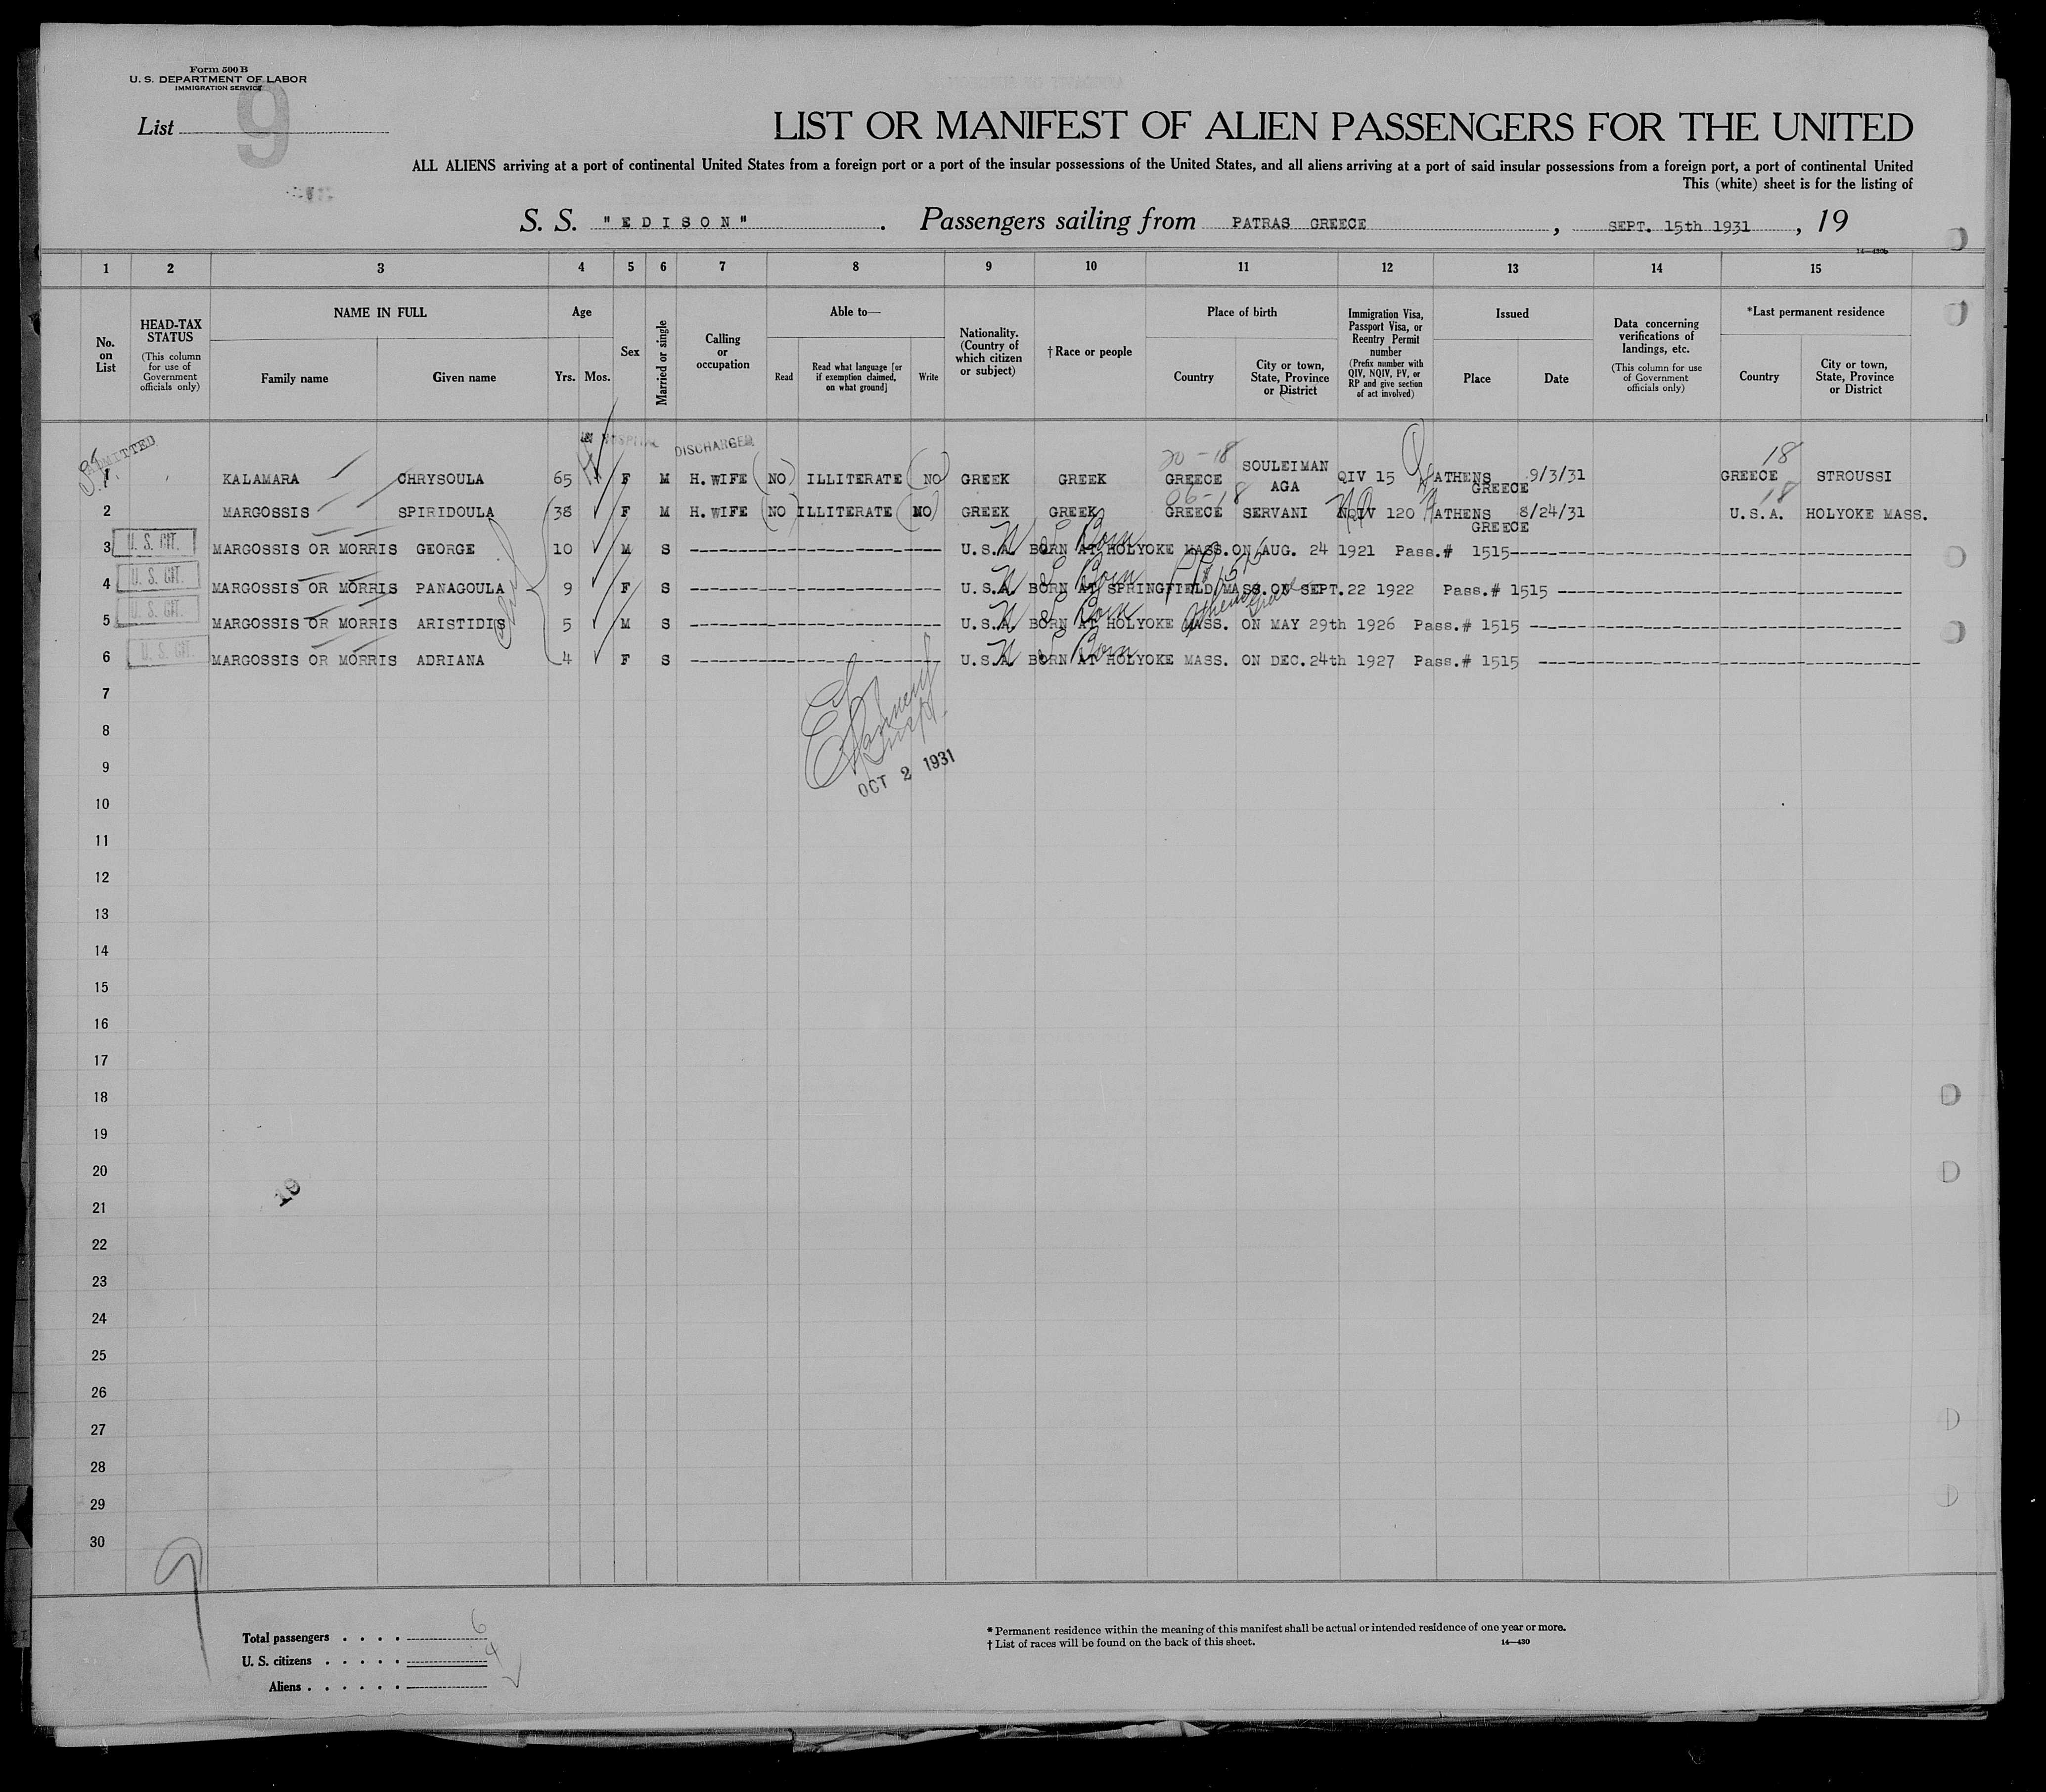 Form 500 B
U. S. DEPARTMENT OF LABOR
IMMIGRATION SERVICE
List 9
LIST OR MANIFEST OF ALIEN PASSENGERS FOR THE UNITED
ALL ALIENS arriving at a port of continental United States from a foreign port or a port of the insular possessions of the United States, and all aliens arriving at a port of said insular possessions from a foreign port, a port of continental United
This (white) sheet is for the listing of
S. S. "EDISON". Passengers sailing from PATRAS GREECE, SEPT. 15th 1931, 19
14—430b
1 2 3 4 5 6 7 8 9 10 11 12 13 14 15
No. on List
HEAD-TAX STATUS (This column for use of Government officials only)
NAME IN FULL
Family name Given name
Age
Yrs. Mos.
Sex
Married or single
Calling or occupation
Able to—
Read Read what language [or if exemption claimed, on what ground] Write
Nationality. (Country of which citizen or subject)
†Race or people
Place of birth
Country City or town, State, Province or District
Immigration Visa, Passport Visa, or Reentry Permit number (Prefix number with QIV, NQIV, PV, or RP and give section of act involved)
Issued
Place Date
Data concerning verifications of landings, etc. (This column for use of Government officials only)
*Last permanent residence
Country City or town, State, Province or District
ADMITTED
HOSPITAL DISCHARGED
20-18 18
1 KALAMARA CHRYSOULA 65 F M H. WIFE (NO) ILLITERATE (NO) GREEK GREEK GREECE SOULEIMAN AGA QIV 15 ATHENS GREECE 9/3/31 GREECE STROUSSI
06-18 18
2 MARGOSSIS SPIRIDOULA 38 F M H. WIFE (NO) ILLITERATE (NO) GREEK GREEK GREECE SERVANI NQIV 120 ATHENS GREECE 8/24/31 U.S.A. HOLYOKE MASS.
U. S. CIT.
3 MARGOSSIS OR MORRIS GEORGE 10 M S U.S.A. BORN AT HOLYOKE MASS. ON AUG. 24 1921 Pass.# 1515
U. S. CIT.
4 MARGOSSIS OR MORRIS PANAGOULA 9 F S U.S.A. BORN AT SPRINGFIELD MASS. ON SEPT.22 1922 Pass.# 1515
U. S. CIT.
5 MARGOSSIS OR MORRIS ARISTIDIS 5 M S U.S.A. BORN AT HOLYOKE MASS. ON MAY 29th 1926 Pass.# 1515
U. S. CIT.
6 MARGOSSIS OR MORRIS ADRIANA 4 F S U.S.A. BORN AT HOLYOKE MASS. ON DEC.24th 1927 Pass.# 1515
7
8
9
OCT 2 1931
10
11
12
13
14
15
16
17
18
19
20
19
21
22
23
24
25
26
27
28
29
30
9
Total passengers . . . . 6
U. S. citizens . . . . . 4
Aliens . . . . . .
* Permanent residence within the meaning of this manifest shall be actual or intended residence of one year or more.
† List of races will be found on the back of this sheet. 14—430